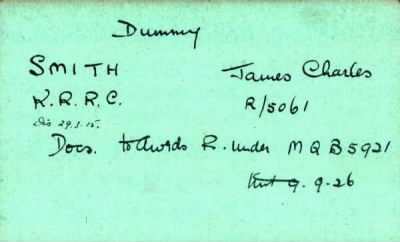 Dummy
SMITH James Charles
K.R.R.C. R/5061
Dis 29.3.15.
Docs. to Awards R. under MQB5921
9. 9-26